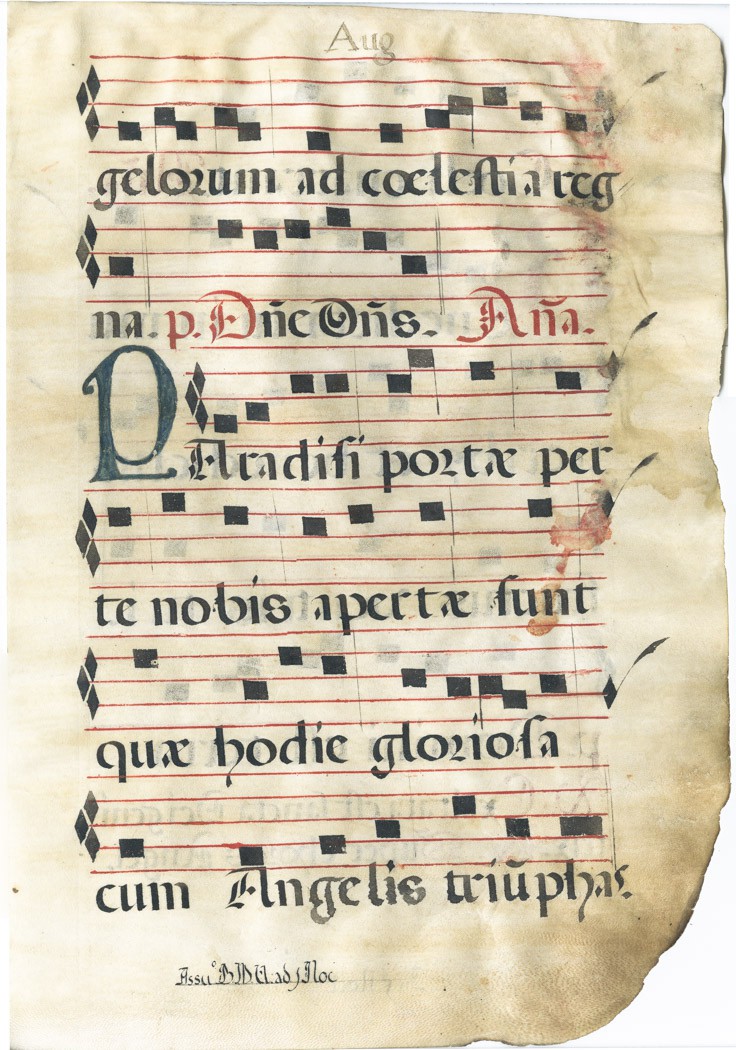 Aug
gelorum ad cœlestia reg
na. p. Dñe Dñs. Aña.
PAradisi portæ per
te nobis apertæ sunt
quæ hodie gloriosa
cum Angelis triũphas.